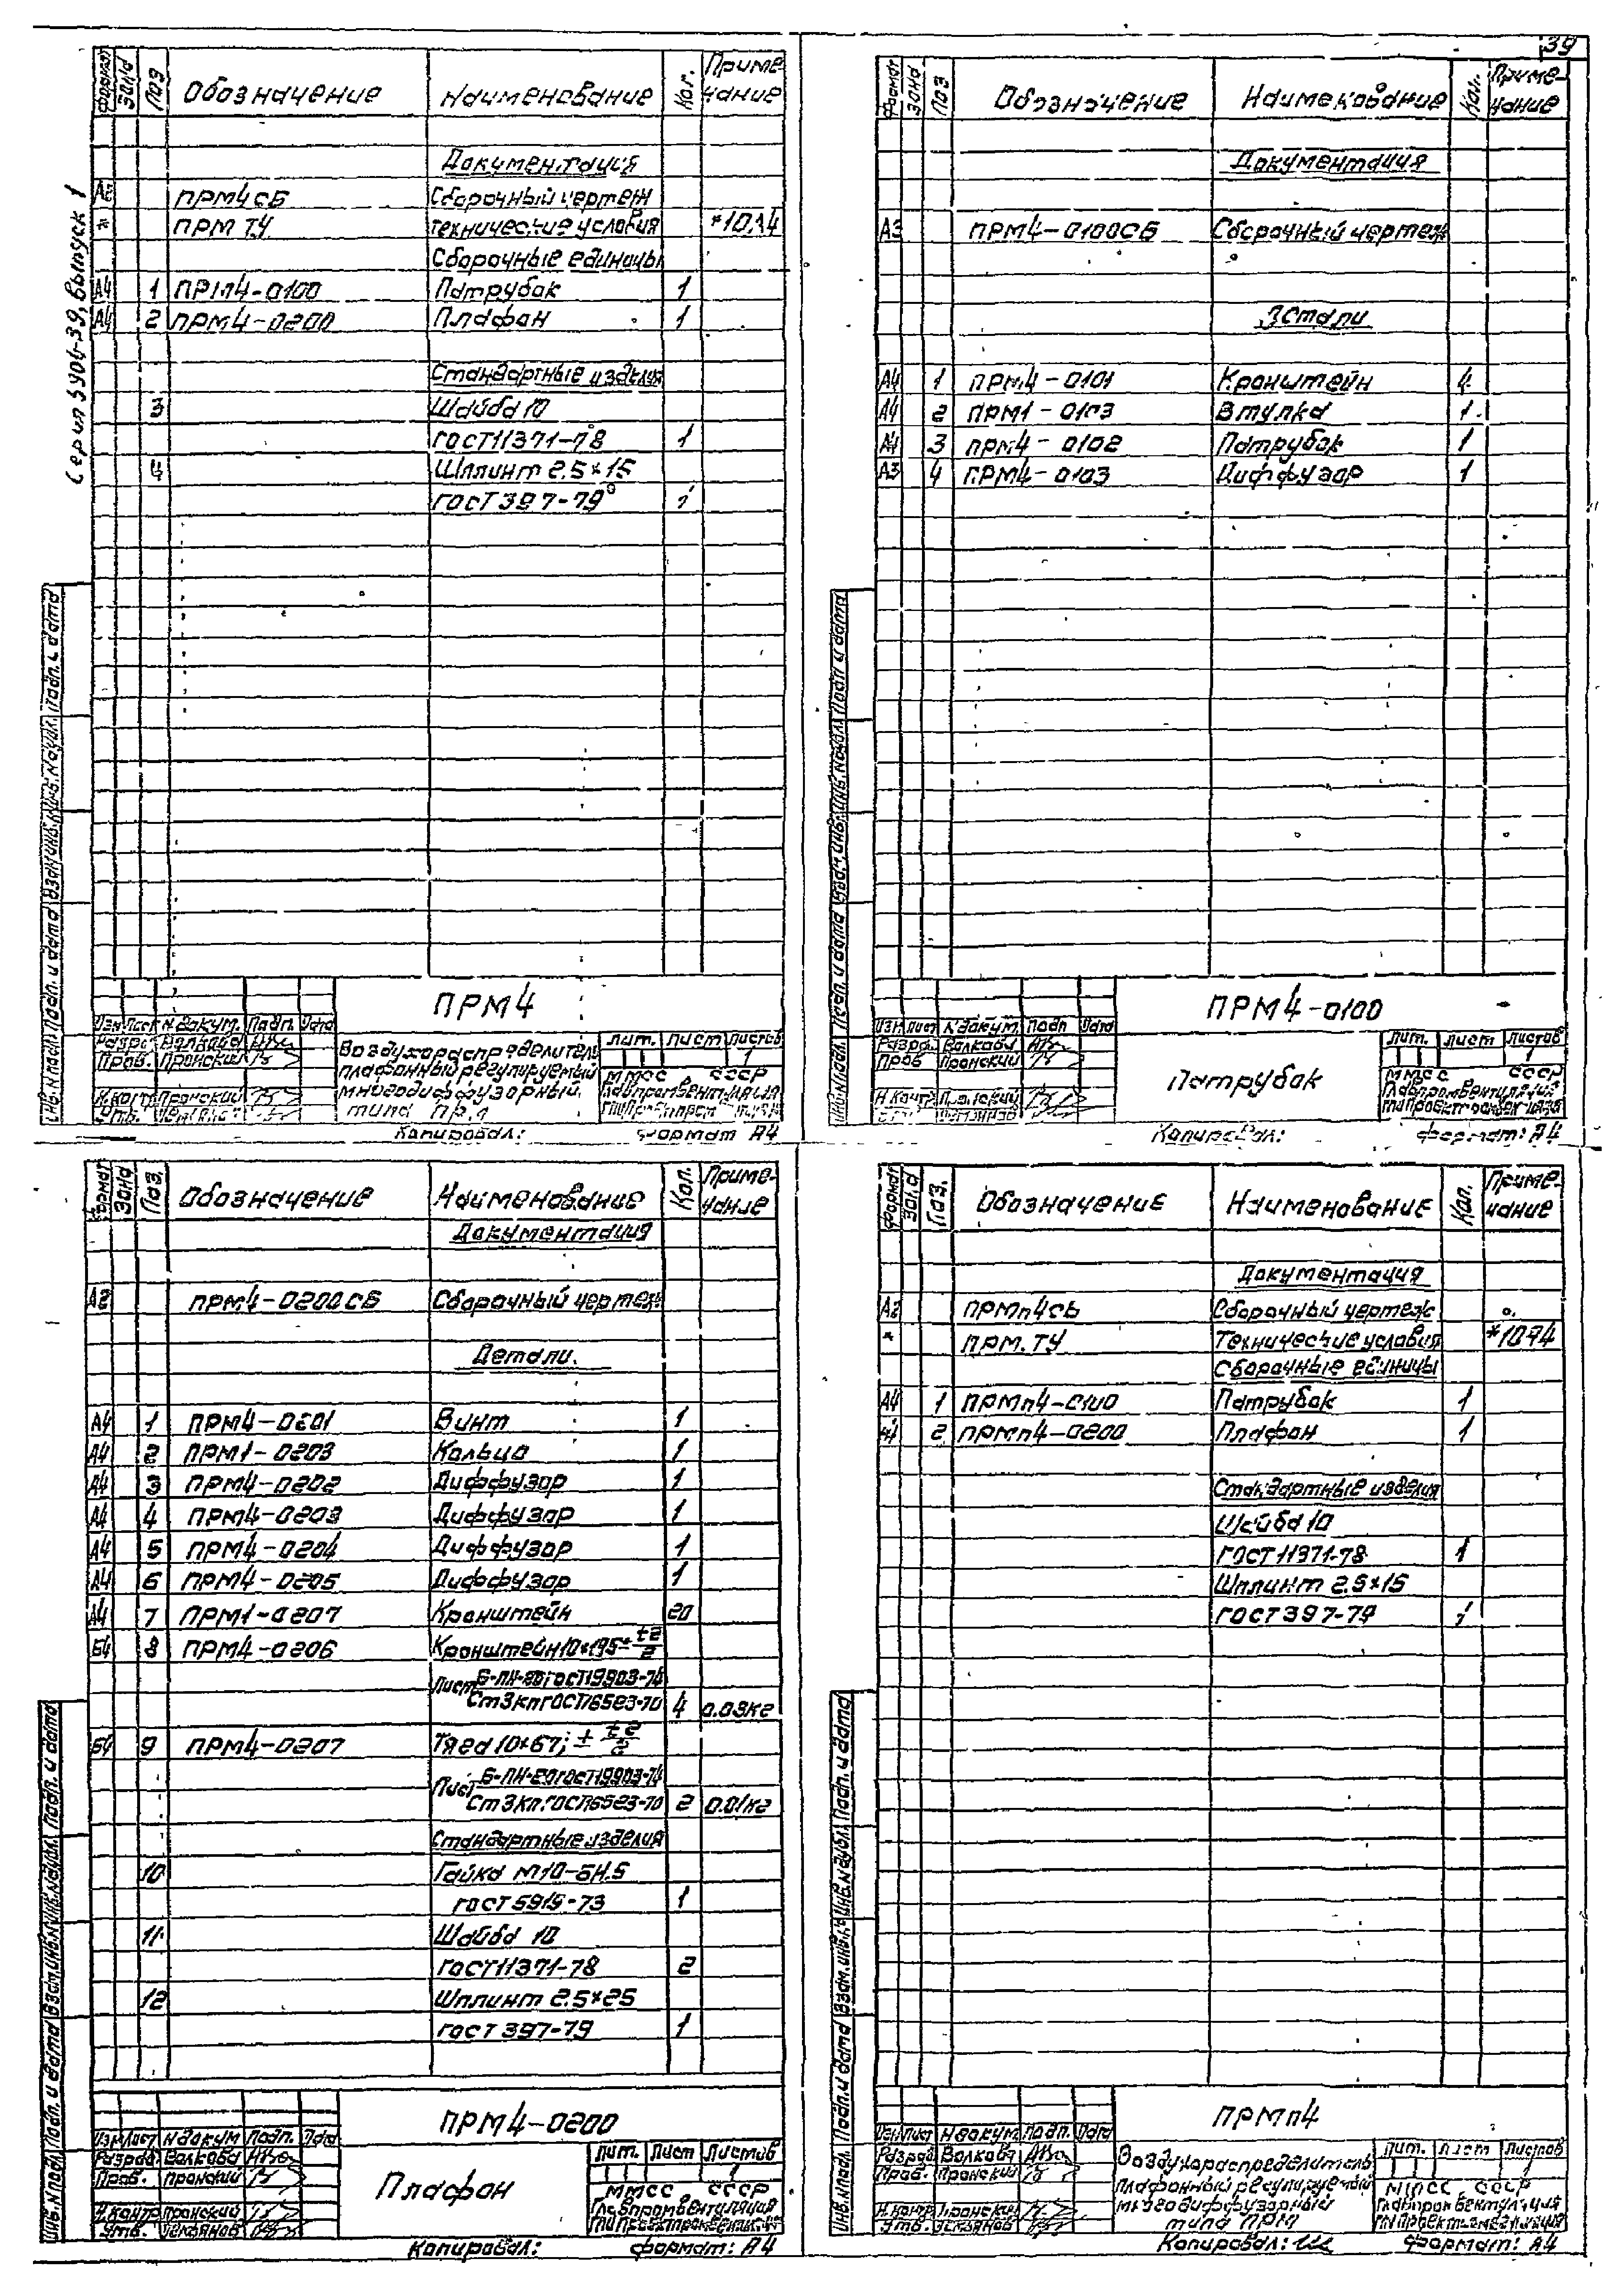 39
Серия 5.904-39, Выпуск 1
Формат Зона Поз Обозначение Наименование Кол. Приме-
чание
Документация
А2 ПРМ4СБ Сборочный чертеж
* ПРМ ТУ Технические условия
Сборочные единицы
А4 1 ПРМ4-0100 Патрубок 1
А4 2 ПРМ4-0200 Плафон 1
Стандартные изделия
3 Шайба 10
ГОСТ 11371-78 1
4 Шплинт 2.5×15
ГОСТ 397-79 1
ПРМ4
Изм. Лист N докум. Подп. Дата
Разраб. Волкова
Пров. Пронский
Н.контр Пронский
Утв.
Воздухораспределитель
плафонный регулируемый
многодиффузорный
типа
Лит. Лист Листов
1
ММСС СССР
Главпромвентиляция
Копировал: Формат А4
Инв.N подл. Подп. и дата Взам.инв.N Инв.N дубл. Подп. и дата
Формат Зона Поз Обозначение Наименование Кол. Приме-
чание
Документация
А3 ПРМ4-0100СБ Сборочный чертеж
Детали
А4 1 ПРМ4-0101 Кронштейн 4
А4 2 ПРМ1-0103 Втулка 1
А4 3 ПРМ4-0102 Патрубок 1
А3 4 ПРМ4-0103 Диффузор 1
ПРМ4-0100
Изм. Лист N докум. Подп Дата
Разраб. Волкова
Пров Пронский
Н.контр Пронский
Патрубок
Лит. Лист Листов
1
ММСС СССР
Главпромвентиляция
Копировал: Формат: А4
Инв.N подл. Подп. и дата Взам.инв.N Инв.N дубл. Подп. и дата
Формат Зона Поз. Обозначение Наименование Кол. Приме-
чание
Документация
А2 ПРМ4-0200СБ Сборочный чертеж
Детали.
А4 1 ПРМ4-0201 Винт 1
А4 2 ПРМ1-0203 Кольцо 1
А4 3 ПРМ4-0202 Диффузор 1
А4 4 ПРМ4-0203 Диффузор 1
А4 5 ПРМ4-0204 Диффузор 1
А4 6 ПРМ4-0205 Диффузор 1
А4 7 ПРМ1-0207 Кронштейн 20
Б4 8 ПРМ4-0206 Кронштейн 10×195±t2/2
Лист Б-ПН-2.0 ГОСТ19903-74
Ст3кп ГОСТ16523-70 4 0.03кг
Б4 9 ПРМ4-0207 Тяга 10×67; ±t2/2
Лист Б-ПН-2.0 ГОСТ19903-74
Ст3кп ГОСТ16523-70 2 0.01кг
Стандартные изделия
10 Гайка М10-6Н.5
ГОСТ 5915-73 1
11 Шайба 10
ГОСТ 11371-78 2
12 Шплинт 2.5×25
ГОСТ 397-79 1
ПРМ4-0200
Изм. Лист N докум Подп. Дата
Разраб. Волкова
Пров. Пронский
Н.контр Пронский
Утв.
Плафон
Лит. Лист Листов
1
ММСС СССР
Главпромвентиляция
Копировал: Формат: А4
Инв.N подл. Подп. и дата Взам.инв.N Инв.N дубл. Подп. и дата
Формат Зона Поз. Обозначение Наименование Кол. Приме-
чание
Документация
А2 ПРМп4СБ Сборочный чертеж
* ПРМ.ТУ Технические условия
Сборочные единицы
А4 1 ПРМп4-0100 Патрубок 1
А4 2 ПРМп4-0200 Плафон 1
Стандартные изделия
Шайба 10
ГОСТ 11371-78 1
Шплинт 2.5×15
ГОСТ 397-79 1
ПРМп4
Изм. Лист N докум Подп. Дата
Разраб. Волкова
Пров. Пронский
Н.контр Пронский
Утв.
Воздухораспределитель
плафонный регулируемый
многодиффузорный
типа ПРМ
Лит. Лист Листов
1
ММСС СССР
Главпромвентиляция
Копировал: Формат: А4
Инв.N подл. Подп. и дата Взам.инв.N Инв.N дубл. Подп. и дата